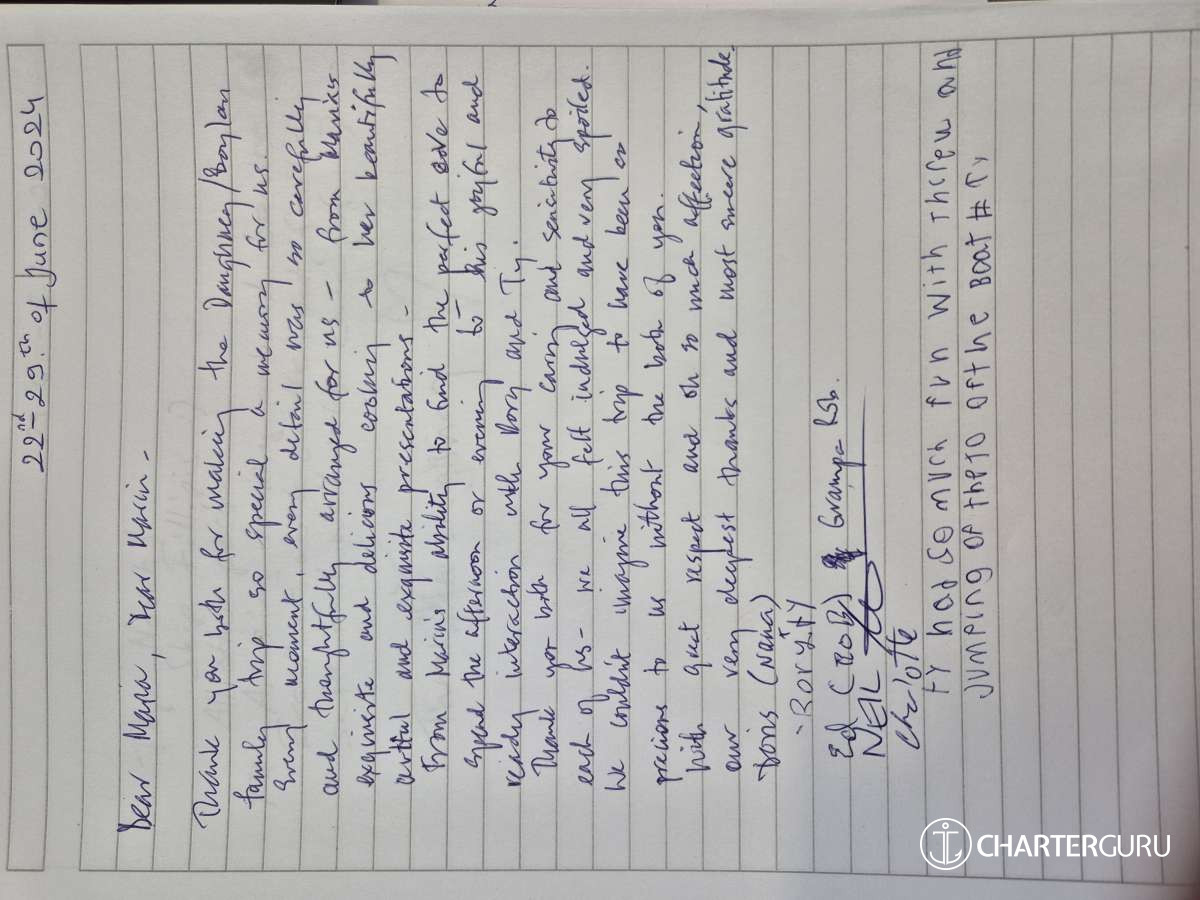 22nd - 29.th of June 2024
Dear Maria, Dear Marin -
Thank you both for making the Daughney/Boylan
family trip so special a memory for us.
Every moment, every detail was so carefully
and thoughtfully arranged for us - from Maria's
exquisite and delicious cooking to her beautifully
artful and exquisite presentations -
From Marin's ability to find the perfect cove to
spend the afternoon or evening to his joyful and
ready interaction with Rory and Ty.
Thank you both for your caring and sensitivity to
each of us - we all felt indulged and very spoiled.
We couldn't imagine this trip to have been as
precious to us without the both of you.
With great respect and oh so much affection,
our very deepest thanks and most sincere gratitude.
Doris (Nana)
- Rory
Ed Grampa
NEIL
Charlotte
TY had so much fun with theew and
jumping of the to of the boat # Ty
CHARTERGURU